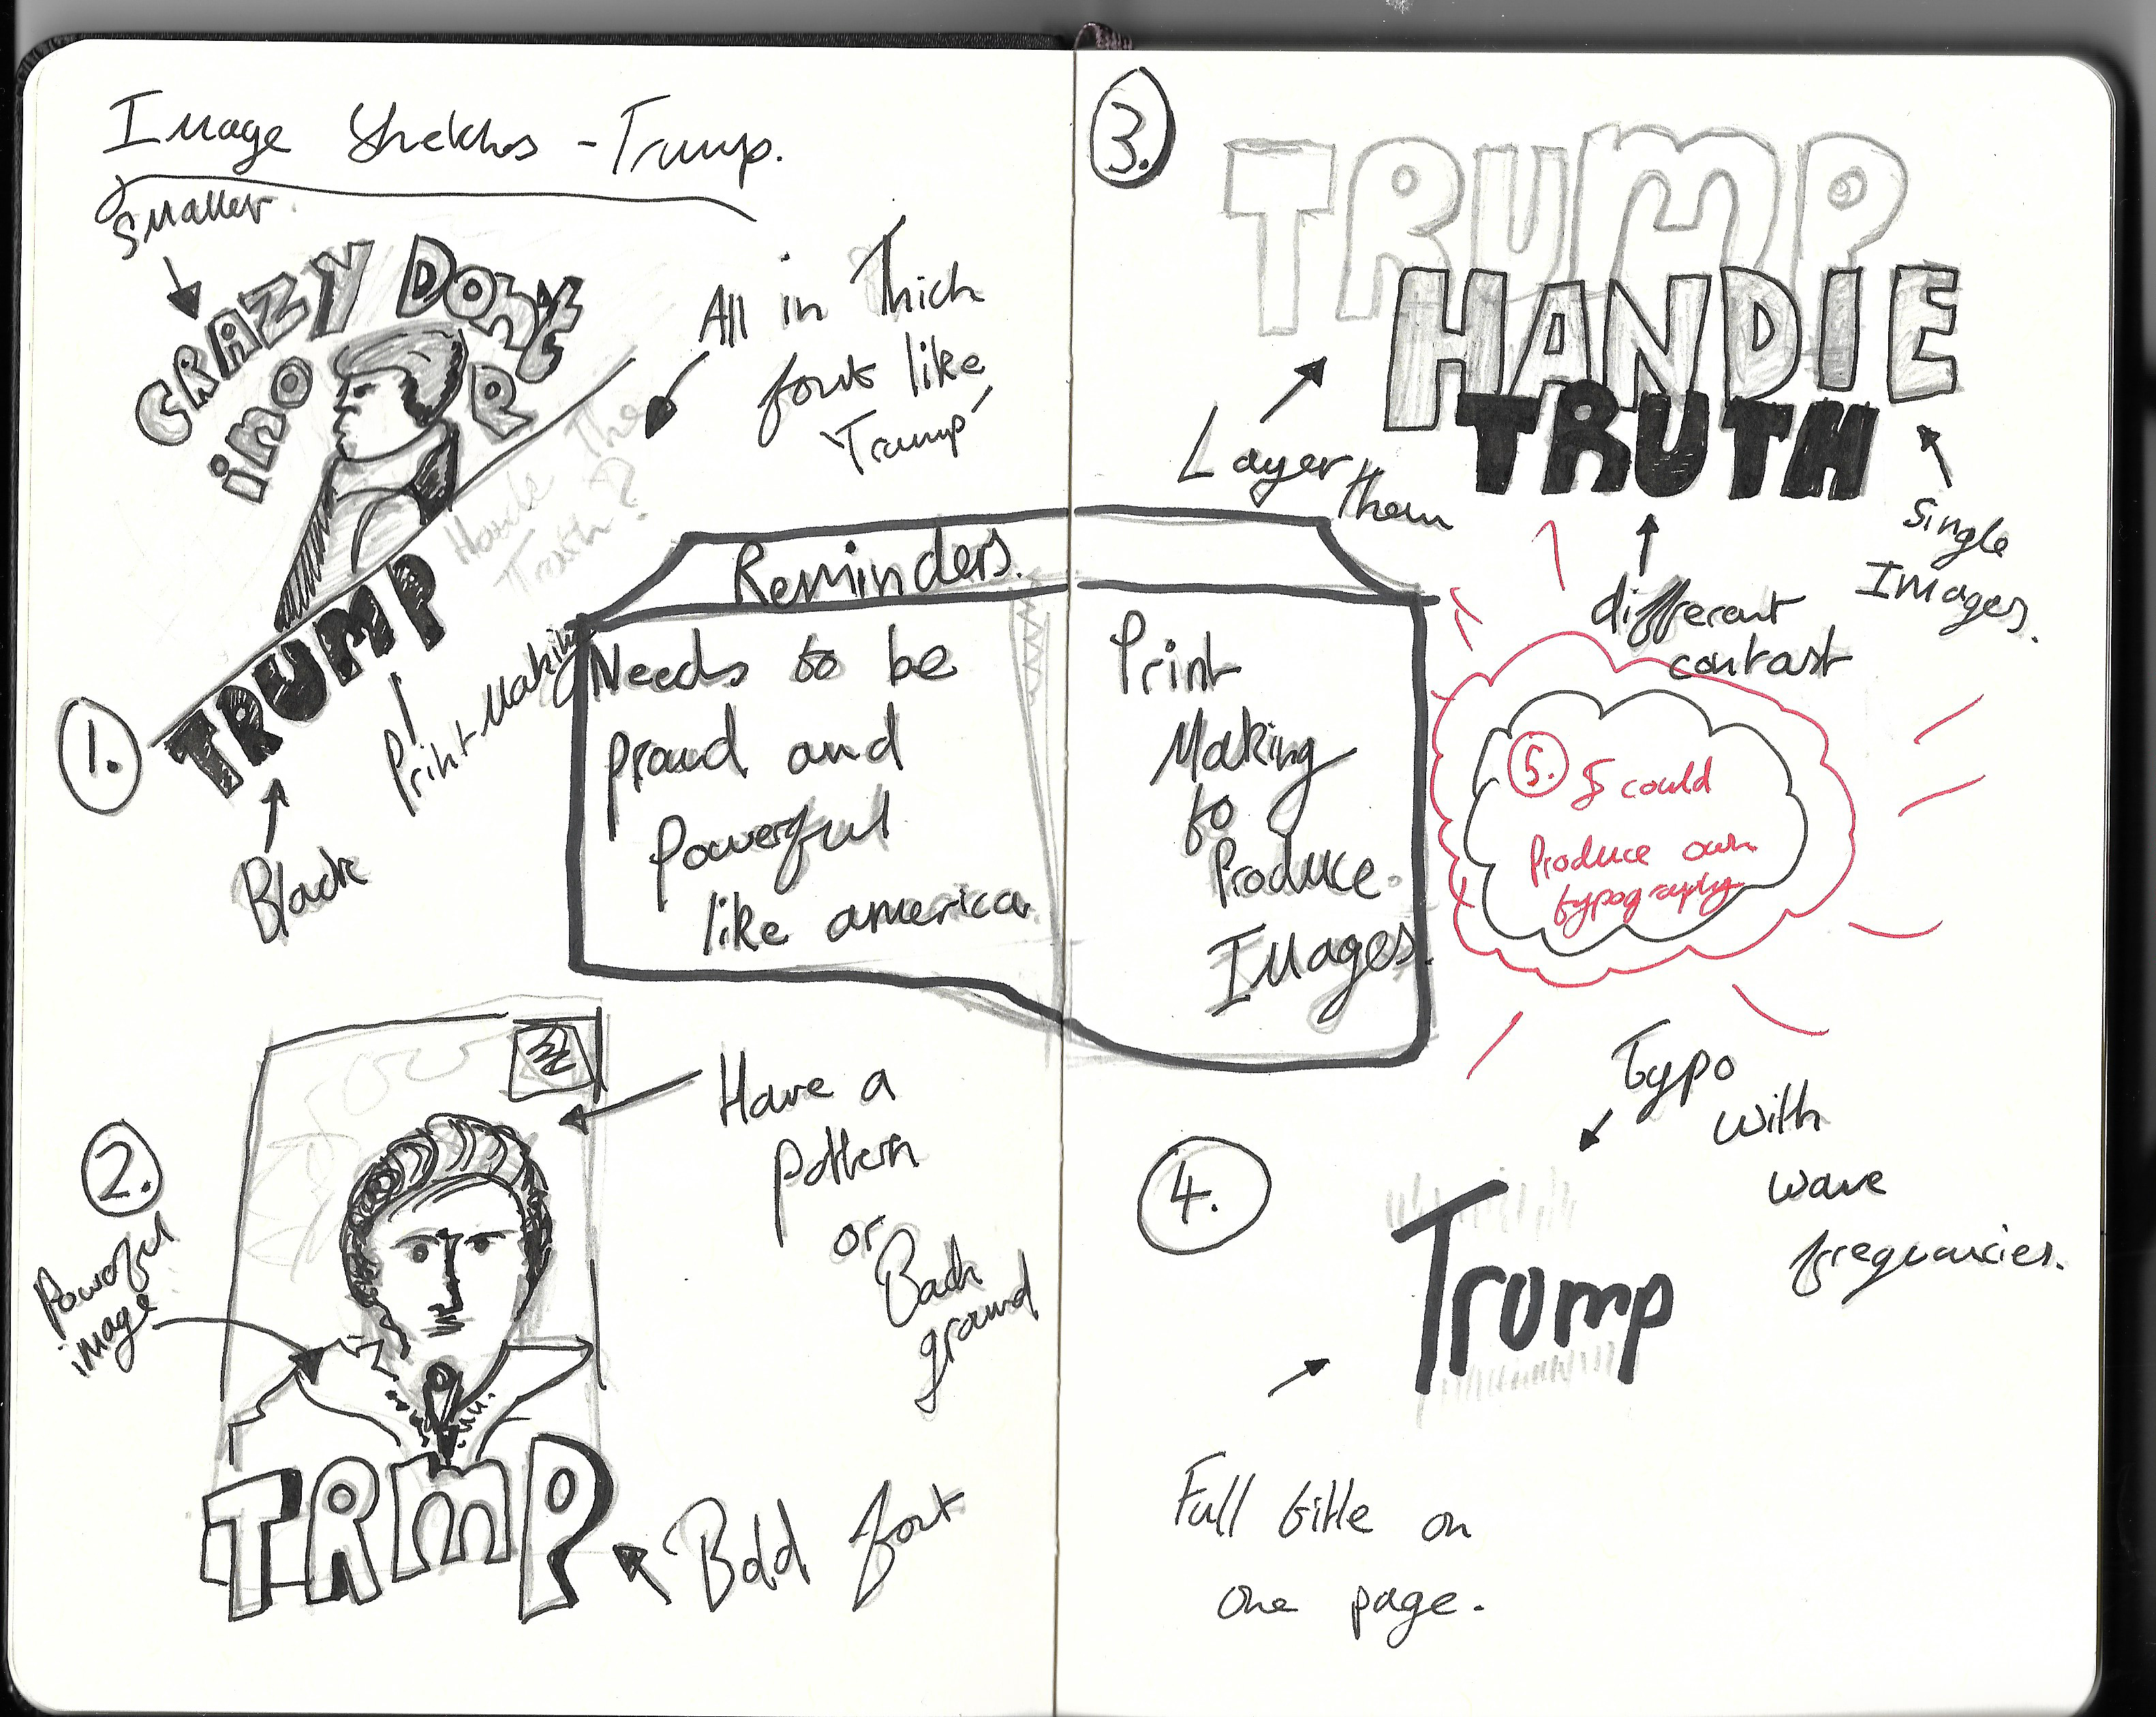 Image Skekhs - Trump.
Smaller
CRAZY DONY
ino
R
All in Thick
fonts like
'Trump'
Handle The
Truth?
TRUMP
1.
Print Making
Black
Reminders.
Needs to be
proud and
powerful
like america
Print
Making
to
Produce
Images.
2.
Powerful
image
Have a
pattern
or
Back
ground
TRMP
Bold font
3.
TRUMP
HANDLE
TRUTH
Layer
them
different
contrast
Single
Images.
5. I could
Produce own
typography
Typo
with
wave
frequancies.
4.
Trump
Full title on
one page.